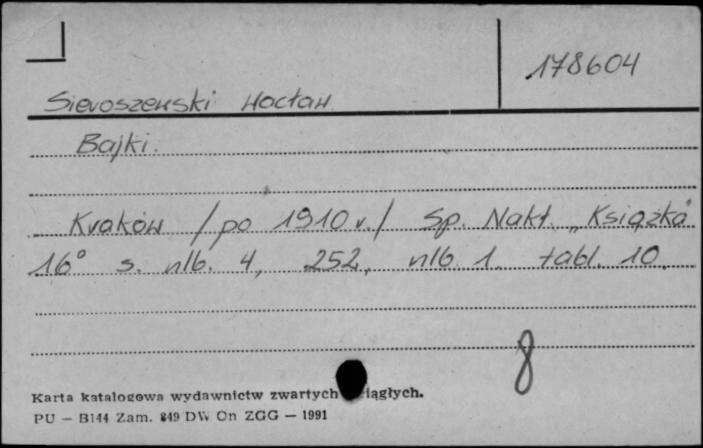 178604
Sieroszewski Wacław
Bajki.
Kraków /po 1910 r./ Sp. Nakł. „Książka"
16° s. nlb. 4, 252, nlb. 1. tabl. 10.
8
Karta katalogowa wydawnictw zwartych ciągłych.
PU — B144 Zam. 849 DW On ZGG — 1991